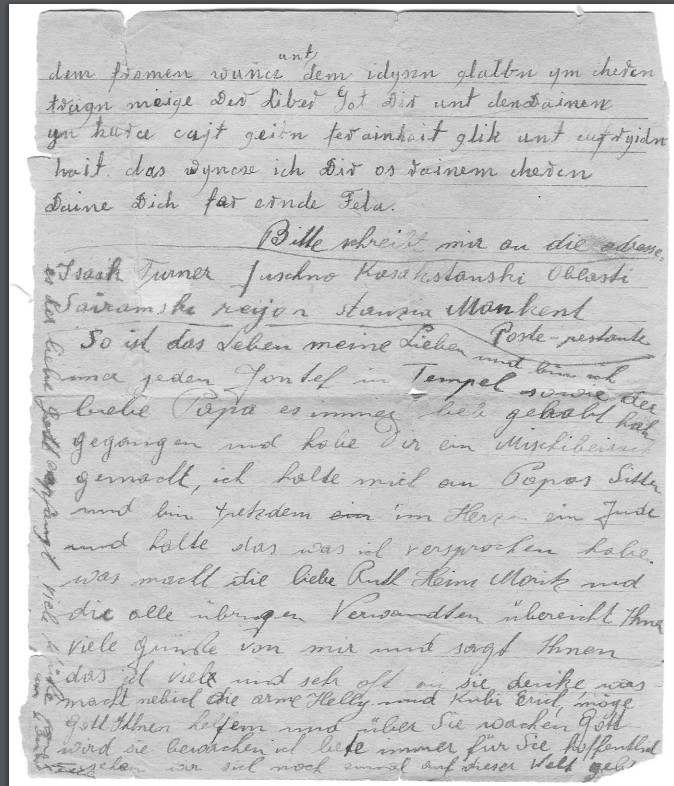 dem fromen wunce unt dem idyszn glaubn ym cheden
traign meige Der Liber Got Dir unt den Dainen
yn kurce cajt geien ferainhait glik unt cufryidn
hait. das wyncze ich Dir os rainem cheden
Daine Dich far ernde Fela.
Bitte schreibt mir an die adresse.
Isaak Turner Juschno Kasakstanski Oblasti
Sairamski reijon stanzia Mankent
Poste-restante
So ist das Leben meine Lieben und bin ich
ima jeden Jontef in Tempel sowie der
liebe Papa es immer lieb gehabt hat
gegangen und habe Dir ein Mischiberach
gemacht, ich halte mich an Papas Sitten
und bin trotzdem ein im Herzen ein Jude
und halte das was ich versprochen habe.
was macht die liebe Ruth Heini Moritz und
die alle übrigen Verwandten übereicht Ihnen
viele grüße von mir und sagt Ihnen
das ich viele und sehr oft an sie denke was
macht nebich die arme Helly und Kubi Erich, möge
Gott Ihnen helfen und über Sie wachen Gott
wird sie bewachen ich bete immer für Sie hoffentlich
sehen wir sich noch einmal auf dieser Welt
der liebe Gott
viele